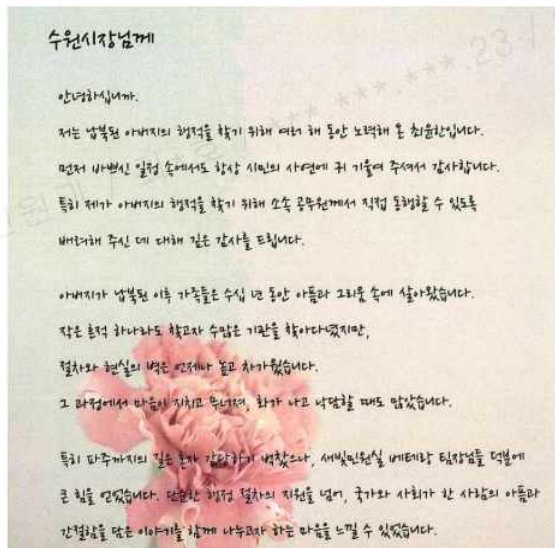 수원시장님께
안녕하십니까.
저는 납북된 아버지의 행적을 찾기 위해 여러 해 동안 노력해 온 최윤한입니다.
먼저 바쁘신 일정 속에서도 항상 시민의 사연에 귀 기울여 주셔서 감사합니다.
특히 제가 아버지의 행적을 찾기 위해 소속 공무원께서 직접 동행할 수 있도록
배려해 주신 데 대해 깊은 감사를 드립니다.
아버지가 납북된 이후 가족들은 수십 년 동안 아픔과 그리움 속에 살아왔습니다.
작은 흔적 하나라도 찾고자 수많은 기관을 찾아다녔지만,
절차와 현실의 벽은 언제나 높고 차가웠습니다.
그 과정에서 마음이 지치고 무너져, 화가 나고 낙담할 때도 많았습니다.
특히 파주까지의 길은 혼자 감당하기 벅찼으나, 새빛민원실 베테랑 팀장님들 덕분에
큰 힘을 얻었습니다. 단순한 행정 절차의 지원을 넘어, 국가와 사회가 한 사람의 아픔과
간절함을 담은 이야기를 함께 나누고자 하는 마음을 느낄 수 있었습니다.